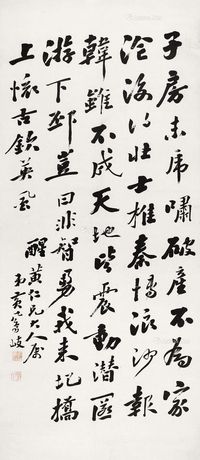 子房未虎嘯破產不為家
滄海得壯士椎秦博浪沙報
韓雖不成天地皆震動潛匿
游下邳豈曰非智勇我來圯橋
上懷古欽英風
醒黃仁兄大人屬
丙寅